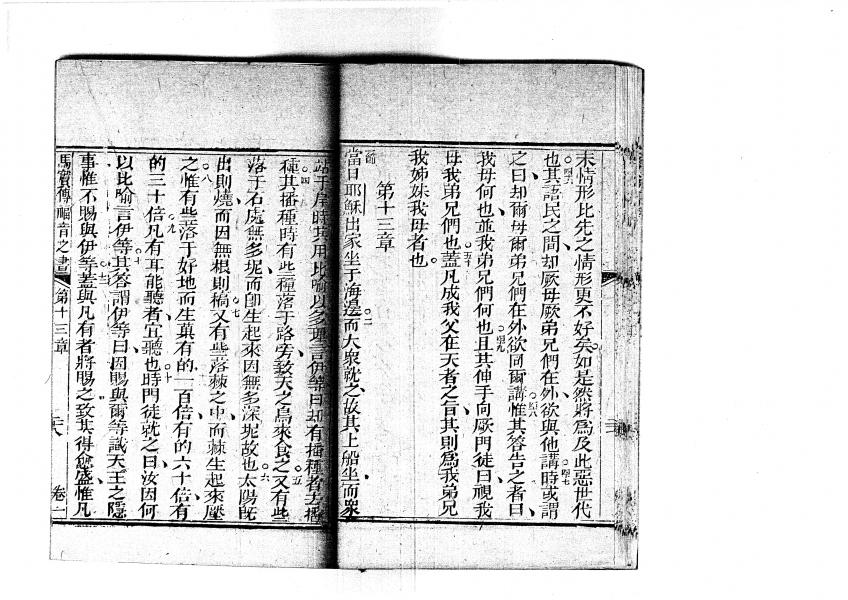 末情形比先之情形更不好矣。如是然將爲及此惡世代
也。四六其語民之間却厥母厥弟兄們在外欲與他講時。四七或謂
之曰却爾母爾弟兄們在外欲同爾講。四八惟其答告之者曰
我母何也並我弟兄們何也。四九且其伸手向厥門徒曰視我
母我弟兄們也。五十蓋凡成我父在天者之旨其則爲我弟兄
我姊妹我母者也。
第十三章
當日耶穌出家坐于海邊。二而大衆就之故其上船坐而衆
站于岸時。三其用比喻以多理言伊等曰却有播種者去播
種。四其播種時有些種落于路旁致天之鳥來食之。五又有些
落于石處無多坭而卽生起來因無多深坭故也。六太陽既
出則燒而因無根則槁。七又有些落棘之中而棘生起來壓
之。八惟有些落于好地而生菓有的一百倍有的六十倍有
的三十倍。九凡有耳能聽者宜聽也。十時門徒就之曰汝因何
以比喻言伊等。十一其答謂伊等曰因賜與爾等識天王之隱
事惟不賜與伊等。十二蓋與凡有者將賜之致其得愈盛惟凡
馬竇傳福音之書 第十三章 卷一